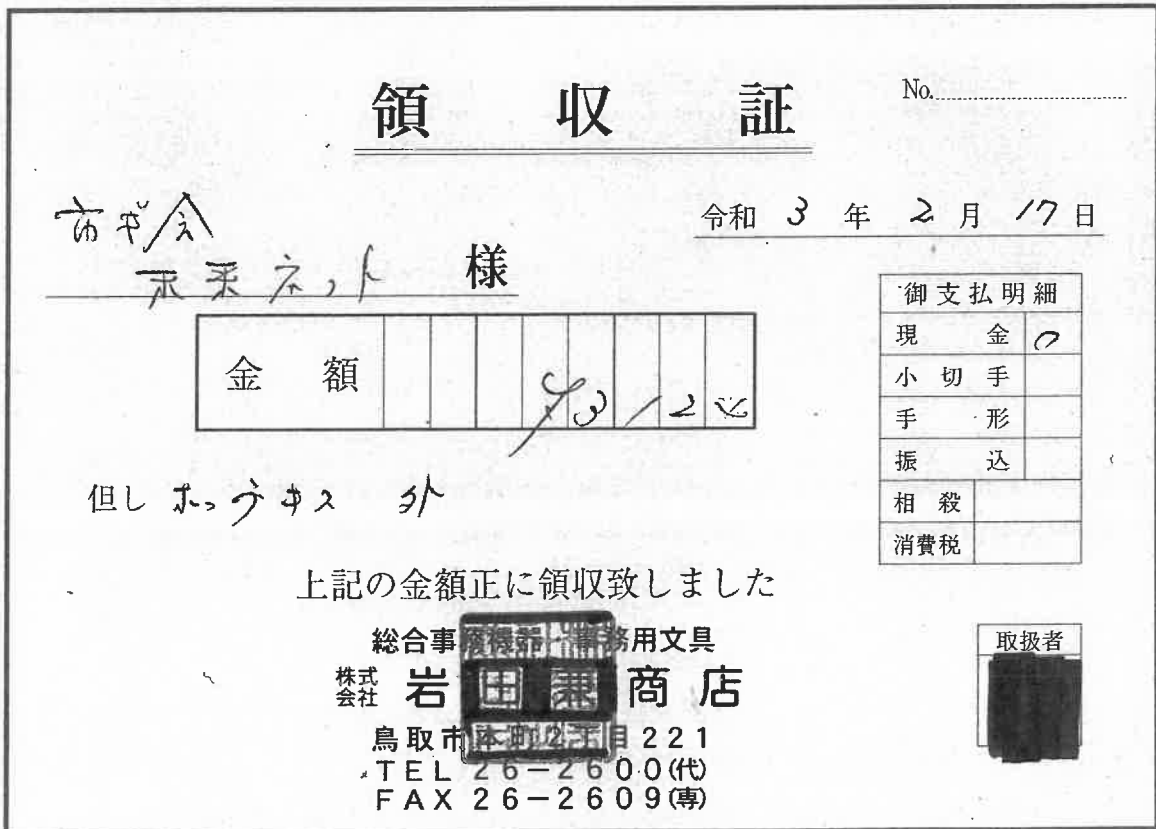 領収証
No.
令和 3 年 2 月 17 日
市ギ会
未来ネット 様
金額 ¥312
但し ホッチキス 外
御支払明細
現金 ○
小切手
手形
振込
相殺
消費税
上記の金額正に領収致しました
総合事務機器・事務用文具
株式会社 岩田兼商店
鳥取市本町2丁目221
TEL 26-2600(代)
FAX 26-2609(専)
取扱者